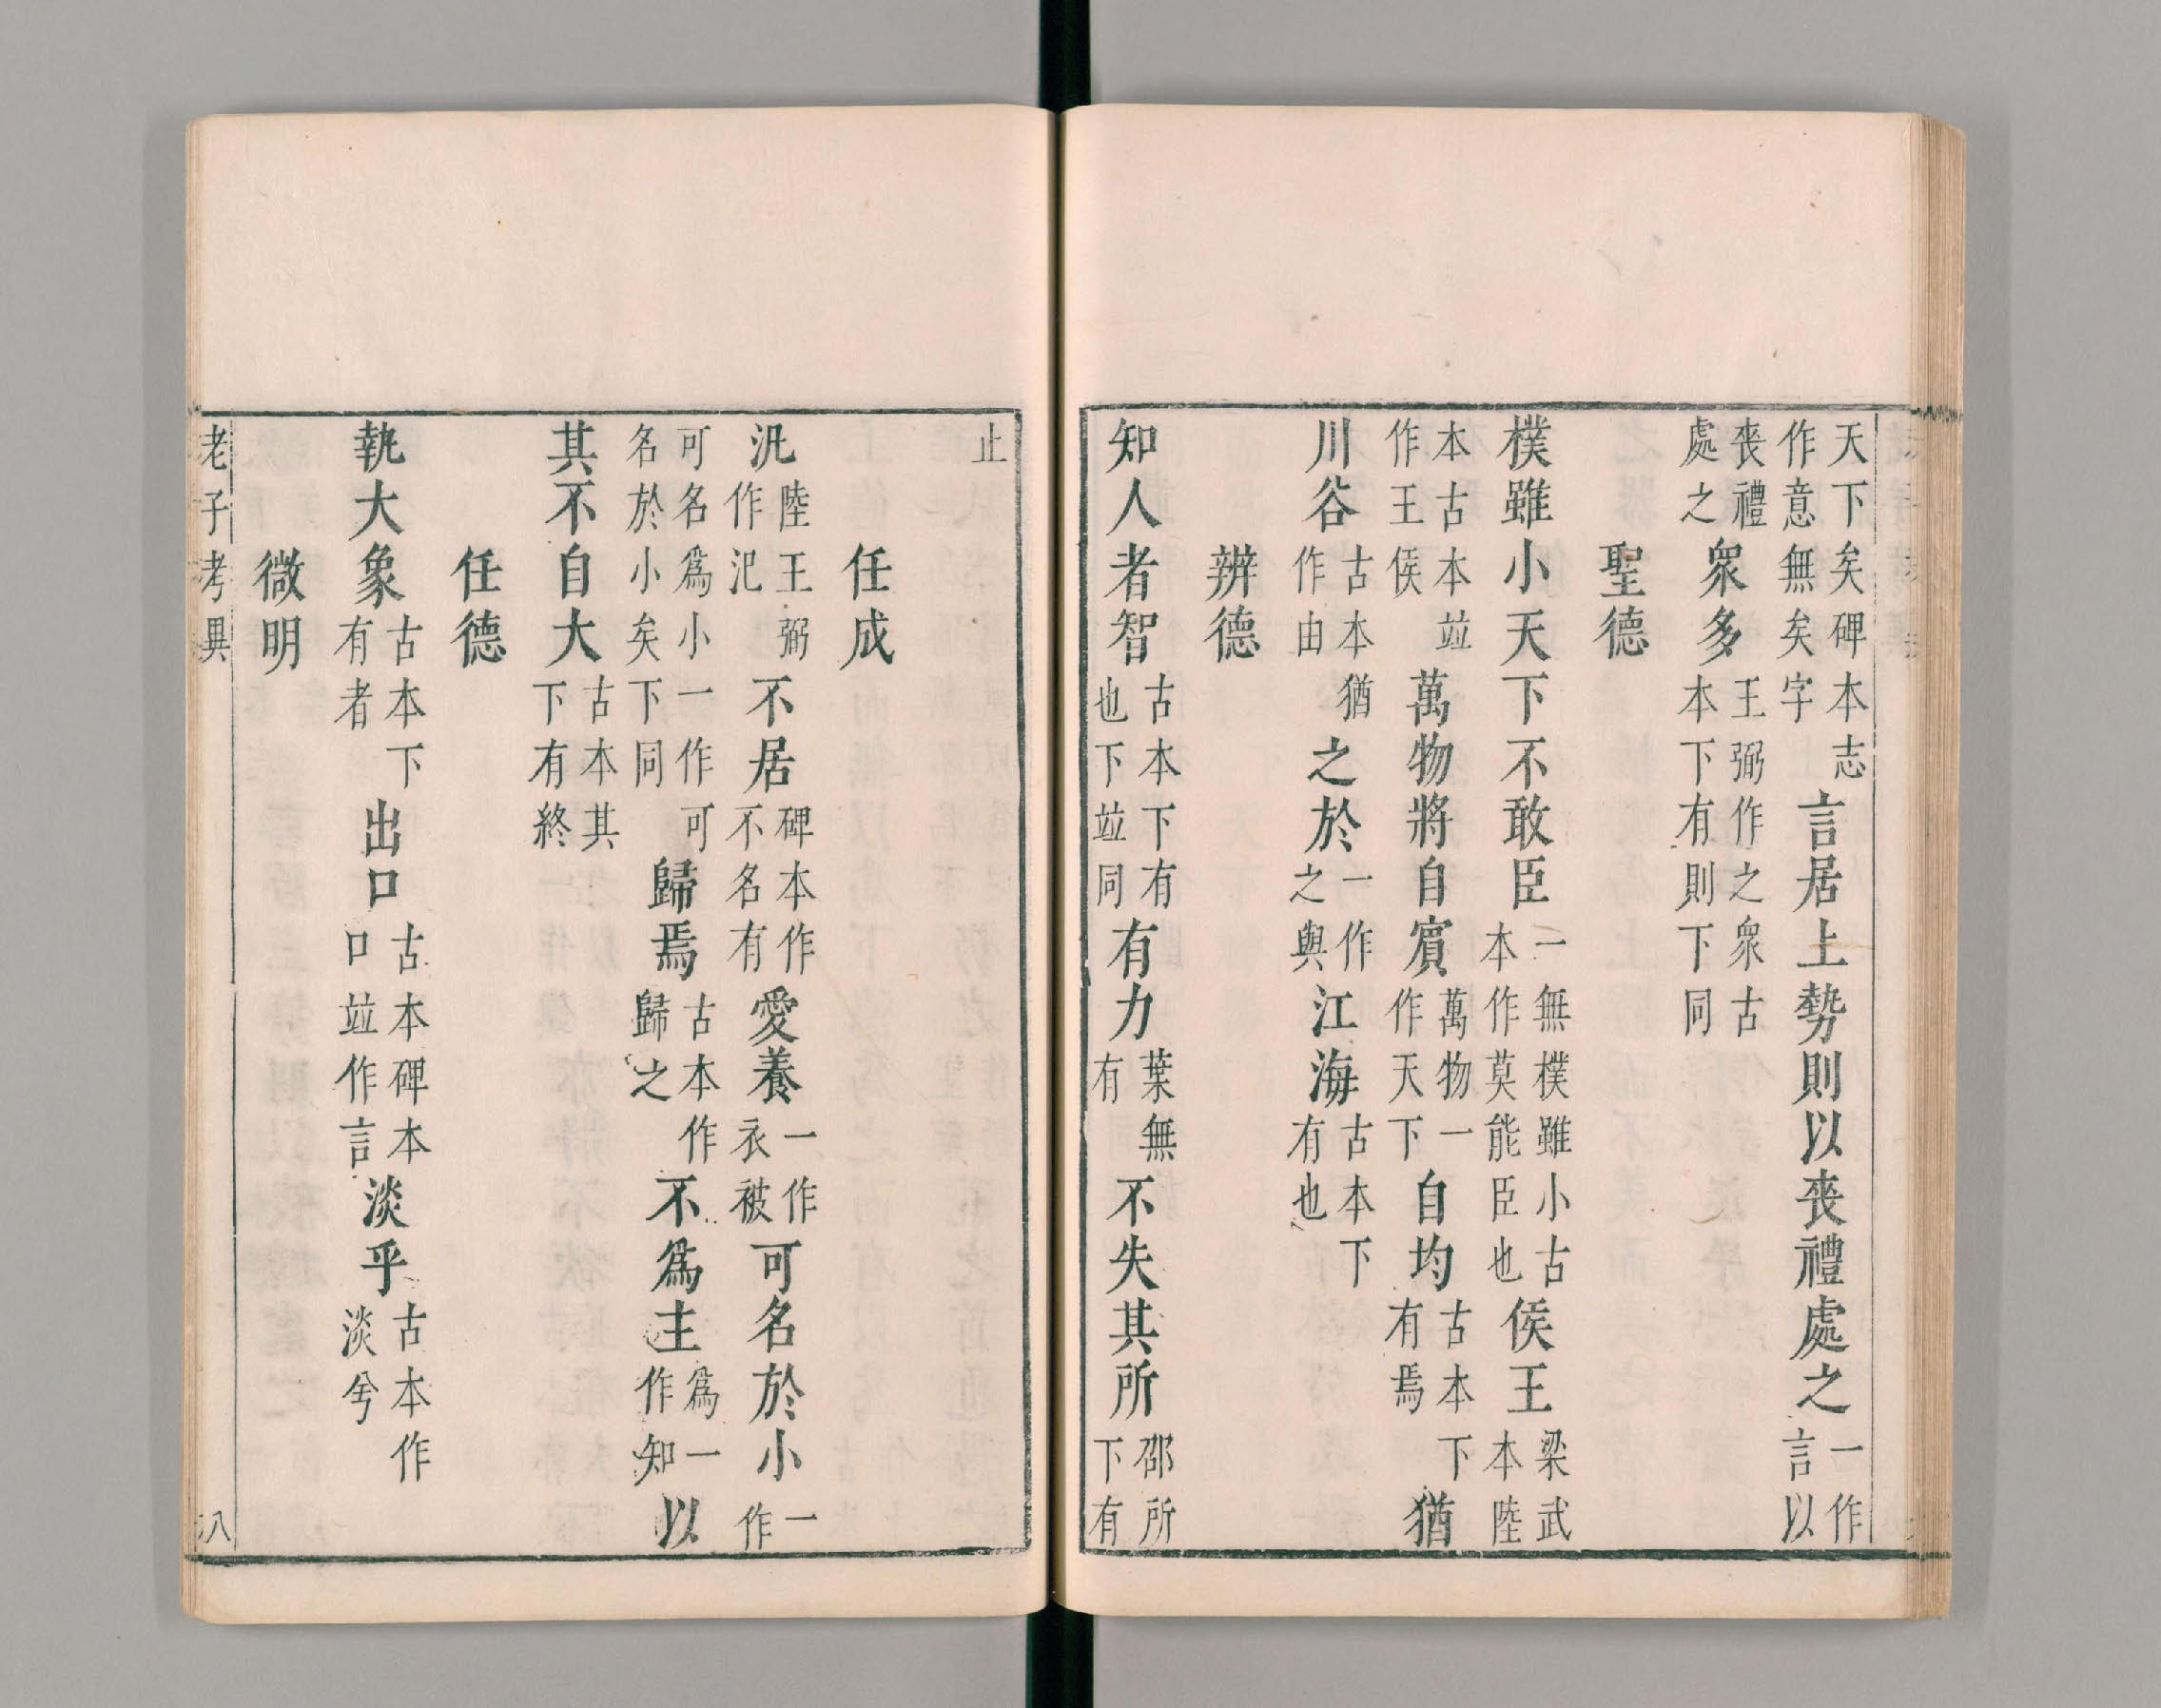 天下矣碑本志作意無矣字言居上勢則以喪禮處之一作言以
喪禮處之衆多王弼作之衆古本下有則下同
聖德
樸雖小天下不敢臣一無樸雖小古本作莫能臣也侯王梁武本陸
本古本竝作王侯萬物將自賓萬物一作天下自均古本下有焉猶
川谷古本猶作由之於一作之與江海古本下有也
辨德
知人者智古本下有也下竝同有力葉無有不失其所邵所下有
止
任成
汎陸王弼作汜不居碑本作不名有愛養一作衣被可名於小一作
可名爲小一作可名於小矣下同歸焉古本作歸之不爲主爲一作知以
其不自大古本其下有終
任德
執大象古本下有者出口古本碑本口竝作言淡乎古本作淡兮
微明
老子考異
八